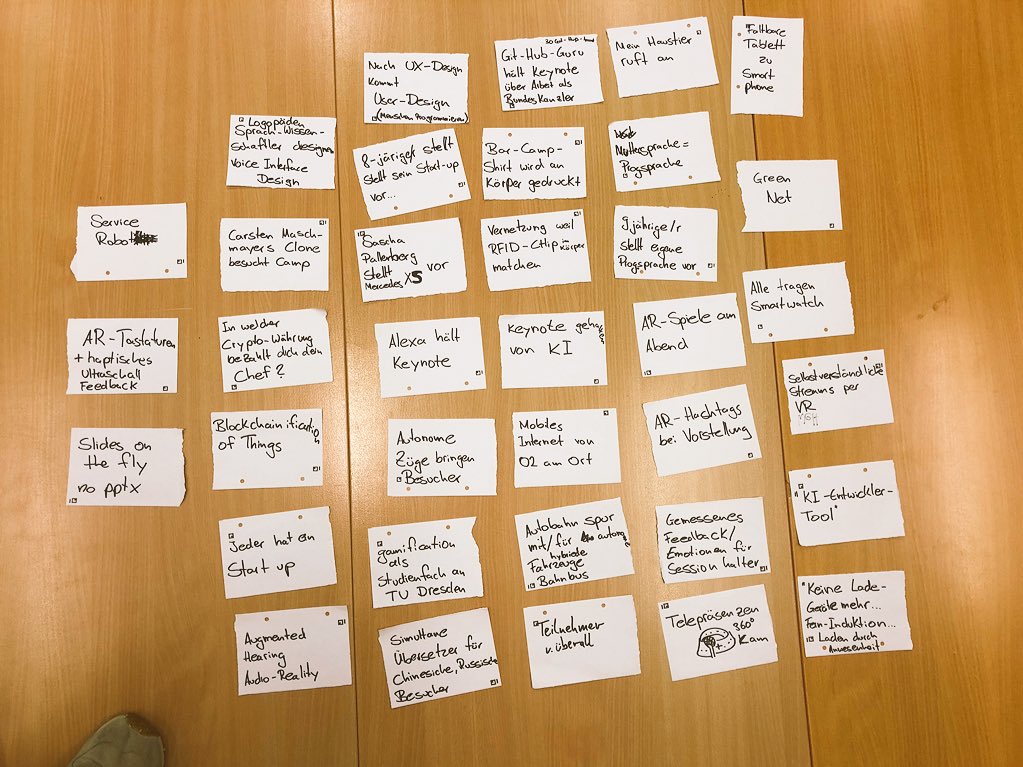 Service
Robot
AR-Tastaturen
+ haptisches
Ultraschall
Feedback
Slides on
the fly
no pptx
Logopäden
Sprach-Wissen-
schaftler designen
Voice Interface
Design
Carsten Masch-
mayers Clone
besucht Camp
In welcher
Crypto-Währung
bezahlt dich dein
Chef?
Blockchainification
of Things
Jeder hat ein
Start up
Augmented
Hearing
Audio-Reality
Nach UX-Design
kommt
User-Design
(Menschen Programmieren)
8-järige/r stellt
stellt sein Start-up
vor...
Sascha
Pallenberg
stellt
Mercedes X5 vor
Alexa hält
Keynote
Autonome
Züge bringen
Besucher
gamification
als
Studienfach an
TU Dresden
Simultane
Übersetzer für
Chinesiche, Russische
Besucher
Git-Hub-Guru
hält Keynote
über Arbeit als
Bundeskanzler
Bar-Camp-
Shirt wird an
Körper gedruckt
Vernetzung weil
RFID-CHip in Körper
matchen
Keynote gehalten
von KI
Mobiles
Internet von
O2 am Ort
Autobahn spur
mit/für autonome
hybride
Fahrzeuge
Bahnbus
Teilnehmer
v. überall
Mein Haustier
ruft an
Muttersprache =
Progsprache
9jährige/r
stellt eigene
Progsprache vor
AR-Spiele am
Abend
AR-Hashtags
bei Vorstellung
Gemessenes
Feedback/
Emotionen für
Session halter
Telepräsenzen
360°
Kam
Faltbare
Tablett
zu
Smart
phone
Green
Net
Alle tragen
Smartwatch
Selbstverständliche
Streams per
VR
"KI-Entwickler-
Tool"
"Keine Lade-
Geräte mehr...
Fern-Induktion...
Laden durch
Anwesenheit